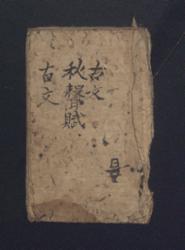 古文
秋聲賦
古文